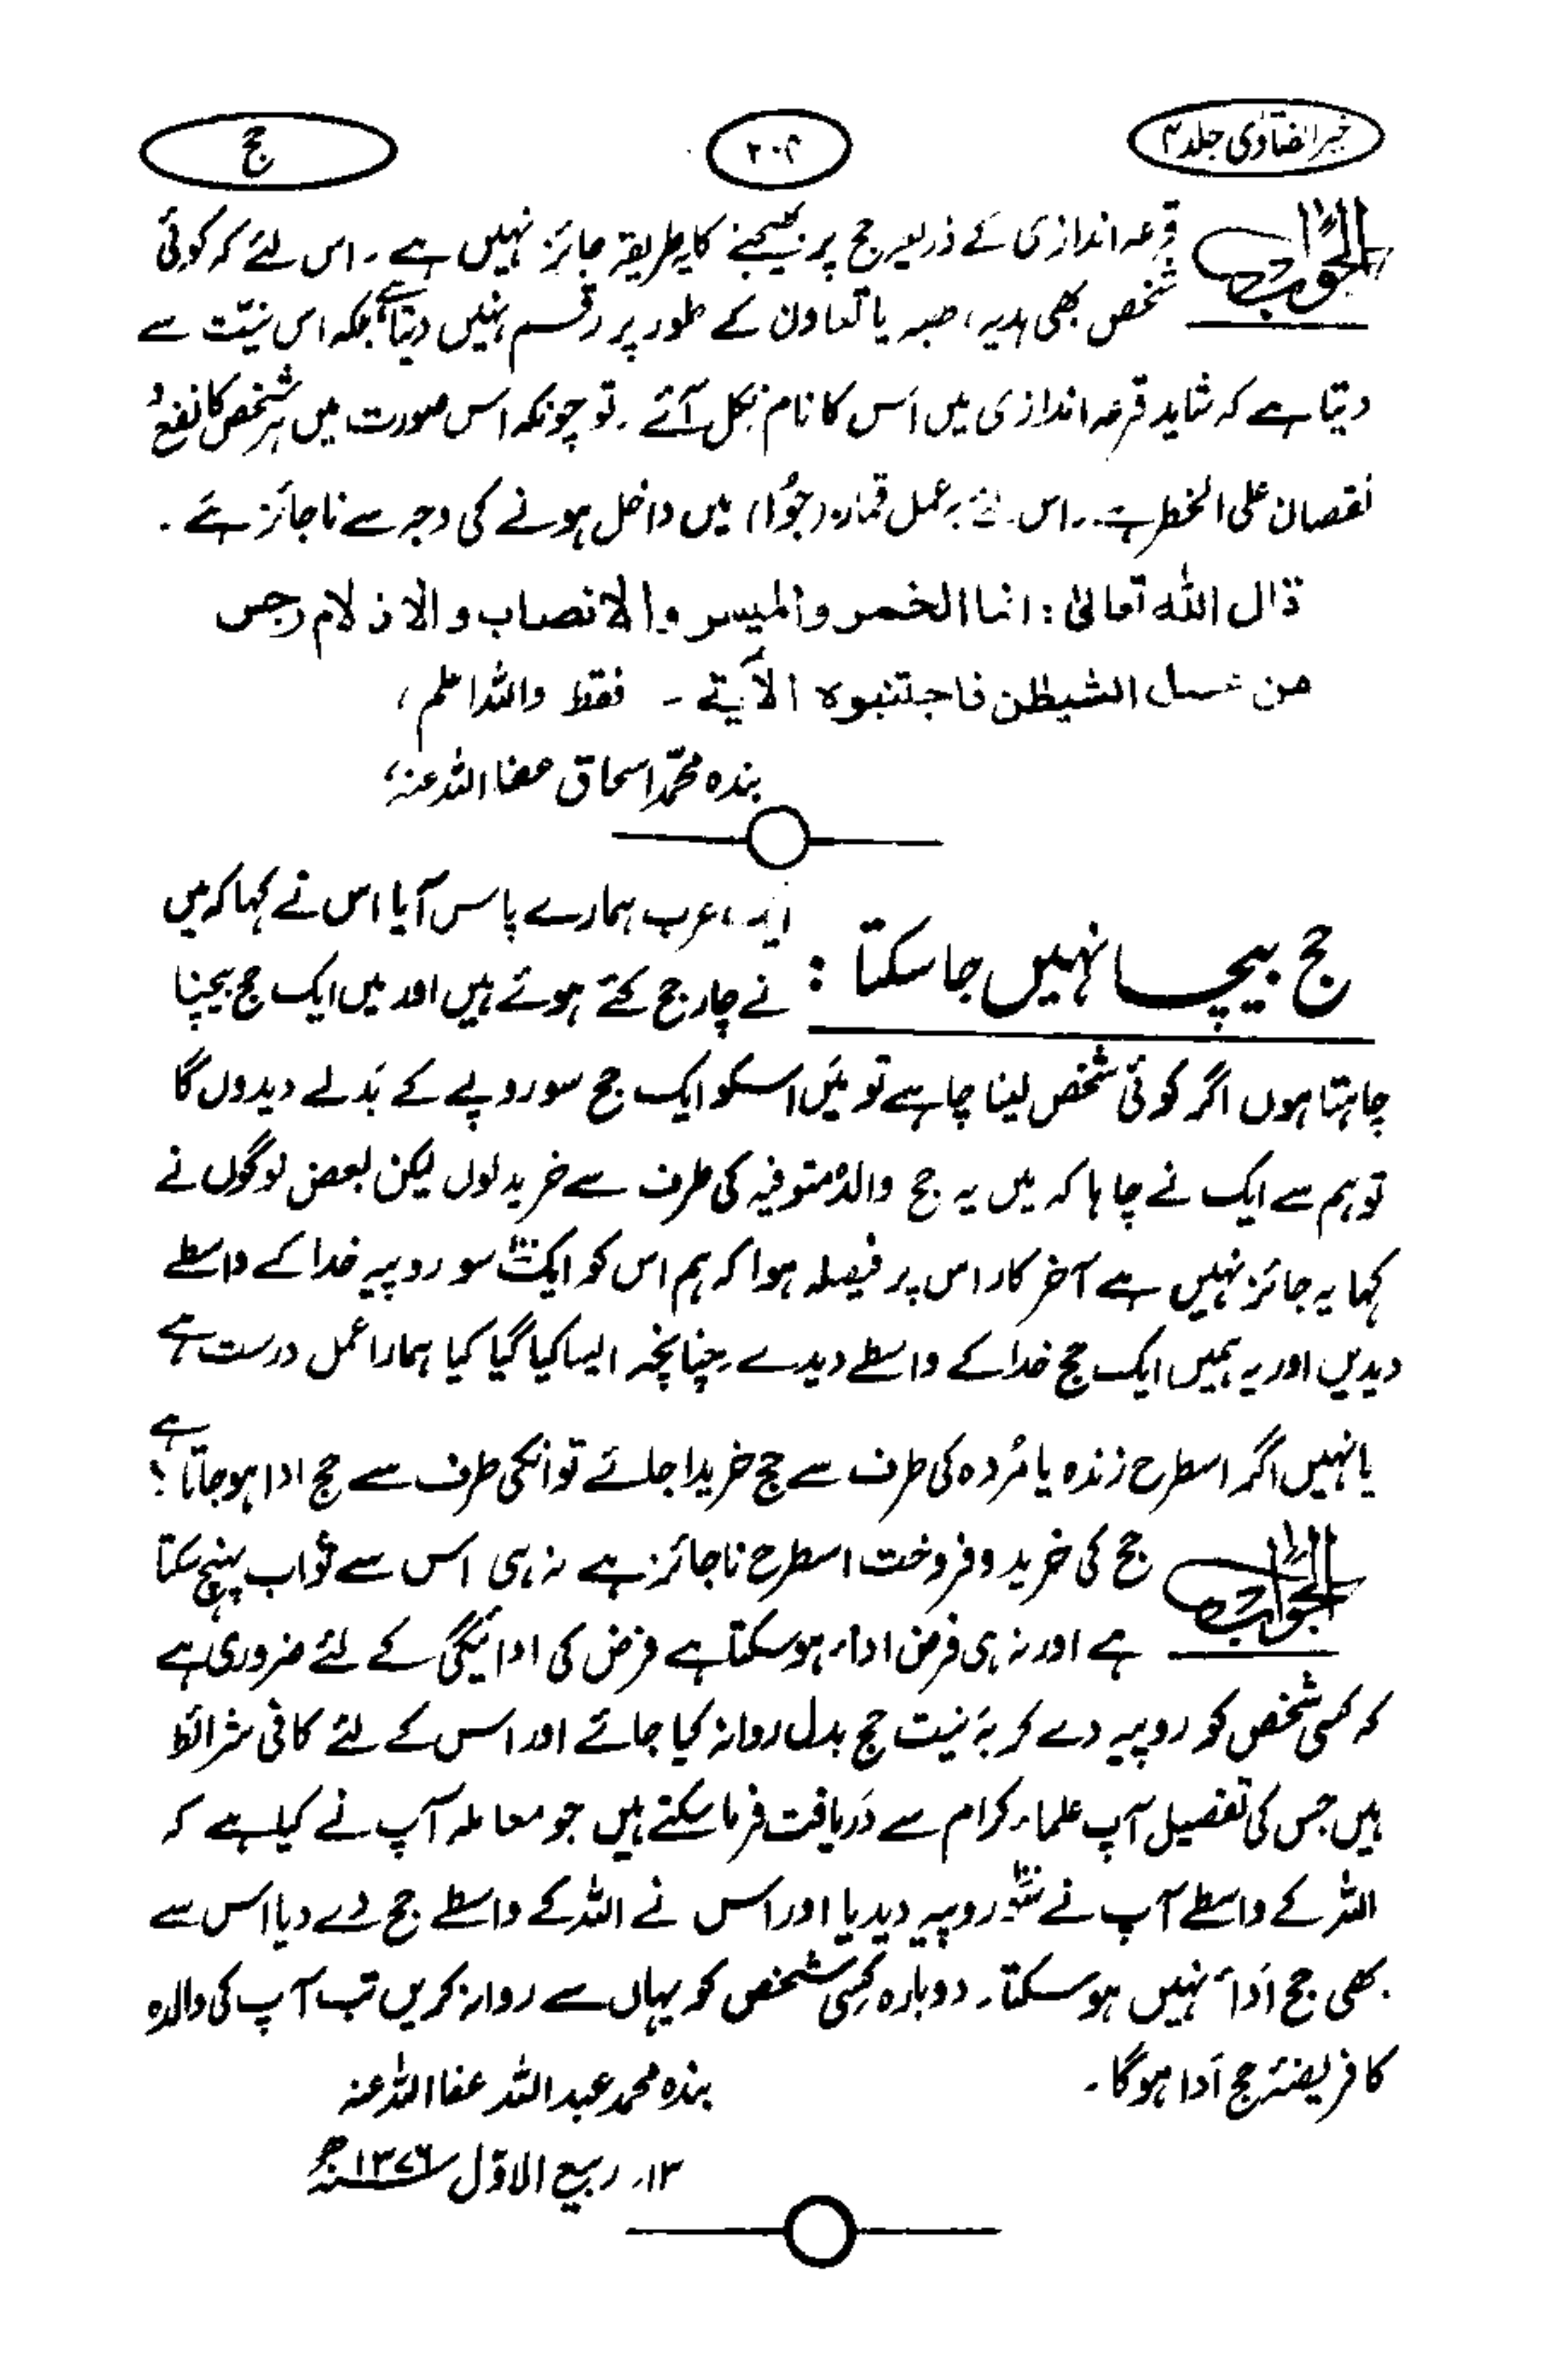 خیر الفتاوی جلد ۴
۲۰۲
حج
الجواب قرعہ اندازی کے ذریعے حج پر بھیجنے کا یہ طریقہ جائز نہیں ہے ۔ اس لئے کہ کوئی
شخص بھی ہدیہ، ھبہ یا تعاون کے طور پر رقم نہیں دیتا بلکہ اس نیّت سے
دیتا ہے کہ شاید قرعہ اندازی میں اُس کا نام نکل آئے ۔ تو چونکہ اس صورت میں ہر شخص کا نفع و
نقصان علی الخطر ہے ۔ اس لئے یہ عمل قمار (جُوا) میں داخل ہونے کی وجہ سے ناجائز ہے ۔
قال اللہ تعالیٰ : انما الخمر والمیسر والانصاب والازلام رجس
من عمل الشیطٰن فاجتنبوہ الآیۃ ۔ فقط واللہ اعلم ،
بندہ محمّد اسحاق عفا اللہ عنہ،
حج بیچا نہیں جا سکتا :
ایک عرب ہمارے پاس آیا اس نے کہا کہ میں
نے چار حج کئے ہوئے ہیں اور میں ایک حج بیچنا
چاہتا ہوں اگر کوئی شخص لینا چاہے تو مَیں اسکو ایک حج سو روپے کے بَدلے دیدوں گا
تو ہم سے ایک نے چاہا کہ میں یہ حج والدہ متوفیہ کی طرف سے خرید لوں لیکن بعض لوگوں نے
کہا یہ جائز نہیں ہے آخر کار اس پر فیصلہ ہوا کہ ہم اس کو ایک سو روپیہ خدا کے واسطے
دیدیں اور یہ ہمیں ایک حج خدا کے واسطے دیدے ۔ چنانچہ ایسا کیا گیا کیا ہمارا عمل درست ہے
یا نہیں اگر اسطرح زندہ یا مُردہ کی طرف سے حج خریدا جائے تو انکی طرف سے حج ادا ہو جاتا ہے ؟
الجواب حج کی خرید و فروخت اسطرح ناجائز ہے نہ ہی اس سے ثواب پہنچ سکتا
ہے اور نہ ہی فرض اداء ہو سکتا ہے فرض کی ادائیگی کے لئے ضروری ہے
کہ کسی شخص کو روپیہ دے کر بہ نیت حج بدل روانہ کیا جائے اور اس کے لئے کافی شرائط
ہیں جس کی تفصیل آپ علماء کرام سے دَریافت فرما سکتے ہیں جو معاملہ آپ نے کیا ہے کہ
اللہ کے واسطے آپ نے سَو روپیہ دیدیا اور اس نے اللہ کے واسطے حج دے دیا اس سے
بھی حج اَداء نہیں ہو سکتا ۔ دوبارہ کِسی شخص کو یہاں سے روانہ کریں تب آپ کی والدہ
کا فریضۂ حج اَدا ہو گا ۔
بندہ محمد عبد اللہ عفا اللہ عنہ
۱۳، ربیع الاوّل ۱۳۷۶ھ